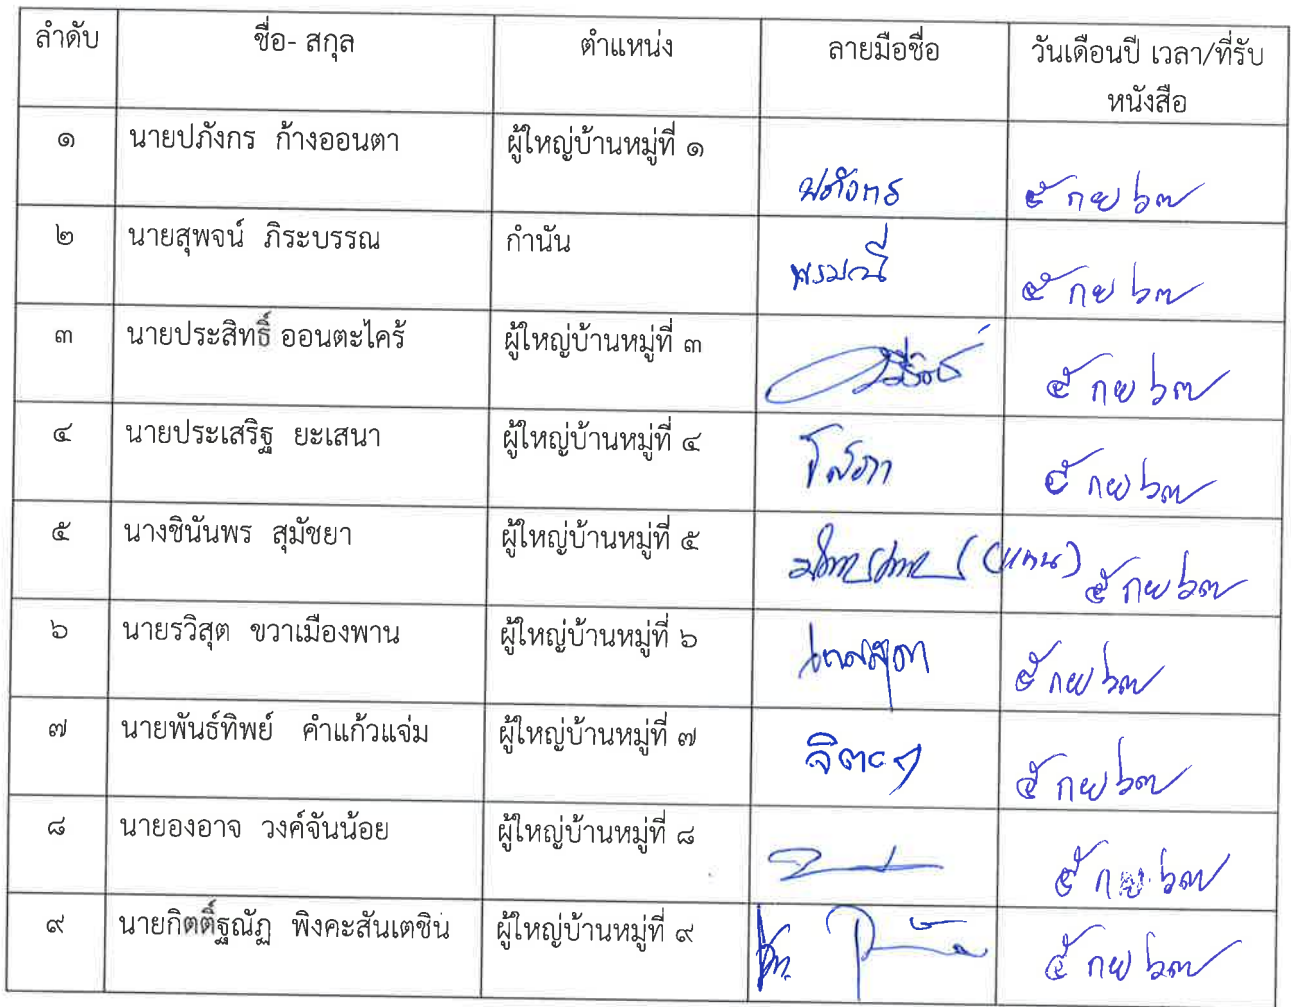 ลำดับ ชื่อ- สกุล ตำแหน่ง ลายมือชื่อ วันเดือนปี เวลา/ที่รับ
หนังสือ
๑ นายปภังกร ก้างออนตา ผู้ใหญ่บ้านหมู่ที่ ๑
ปภังกร ๕ กย ๖๗
๒ นายสุพจน์ ภิระบรรณ กำนัน
พรมณี ๕ กย ๖๗
๓ นายประสิทธิ์ ออนตะไคร้ ผู้ใหญ่บ้านหมู่ที่ ๓
๕ กย ๖๗
๔ นายประเสริฐ ยะเสนา ผู้ใหญ่บ้านหมู่ที่ ๔
๕ กย ๖๗
๕ นางชินันพร สุมัชยา ผู้ใหญ่บ้านหมู่ที่ ๕
(แทน) ๕ กย ๖๗
๖ นายรวิสุต ขวาเมืองพาน ผู้ใหญ่บ้านหมู่ที่ ๖
๕ กย ๖๗
๗ นายพันธ์ทิพย์ คำแก้วแจ่ม ผู้ใหญ่บ้านหมู่ที่ ๗
๕ กย ๖๗
๘ นายองอาจ วงค์จันน้อย ผู้ใหญ่บ้านหมู่ที่ ๘
๕ กย ๖๗
๙ นายกิตติ์ฐณัฏ พิงคะสันเตชิน ผู้ใหญ่บ้านหมู่ที่ ๙
๕ กย ๖๗